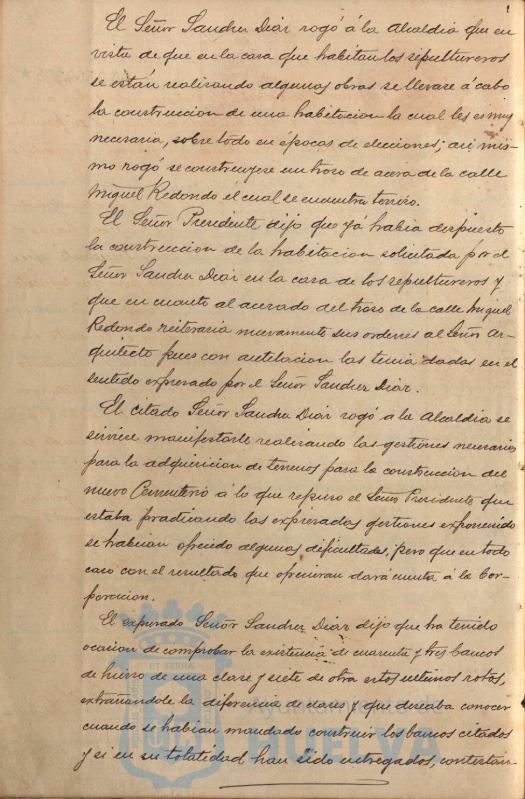 El Señor Sandrez Diaz rogó á la Alcaldia que en
vista de que en la casa que habitan los sepultureros
se están realizando algunas obras se llevase á cabo
la construccion de una habitacion la cual les es muy
necesaria, sobre todo en épocas de elecciones; asi mis-
mo rogó se construyese un troso de acera de la calle
Miguel Redondo el cual se encuentra terriso.
El Señor Presidente dijo que yá habia dispuesto
la construccion de la habitacion solicitada por el
Señor Sandrez Diaz en la casa de los sepultureros y
que en cuanto al acerado del troso de la calle Miguel
Redondo reiteraria nuevamente sus ordenes al Señor Ar-
quitecto pues con antelacion las tenia dadas en el
sentido expresado por el Señor Sandrez Diaz.
El citado Señor Sandrez Diaz rogó a la Alcaldia se
sirviese manifestarle realizando las gestiones necesarias
para la adquisicion de terrenos para la construccion del
nuevo Cementerio á lo que repuso el Señor Presidente que
estaba practicando las expresadas gestiones exponiendo
se habian ofrecido algunas dificultades, pero que en todo
caso con el resultado que ofrecieran dará cuenta á la Cor-
poracion.
El expresado Señor Sandrez Diaz dijo que ha tenido
ocasion de comprobar la existencia de cuarenta y tres bancos
de hierro de una clase y siete de otra estos ultimos rotos,
extrañandole la diferencia de clases y que deseaba conocer
cuando se habian mandado construir los bancos citados
y si en su totalidad han sido entregados, contestan-
ET TERRÆ
Ayuntamiento de
HUELVA